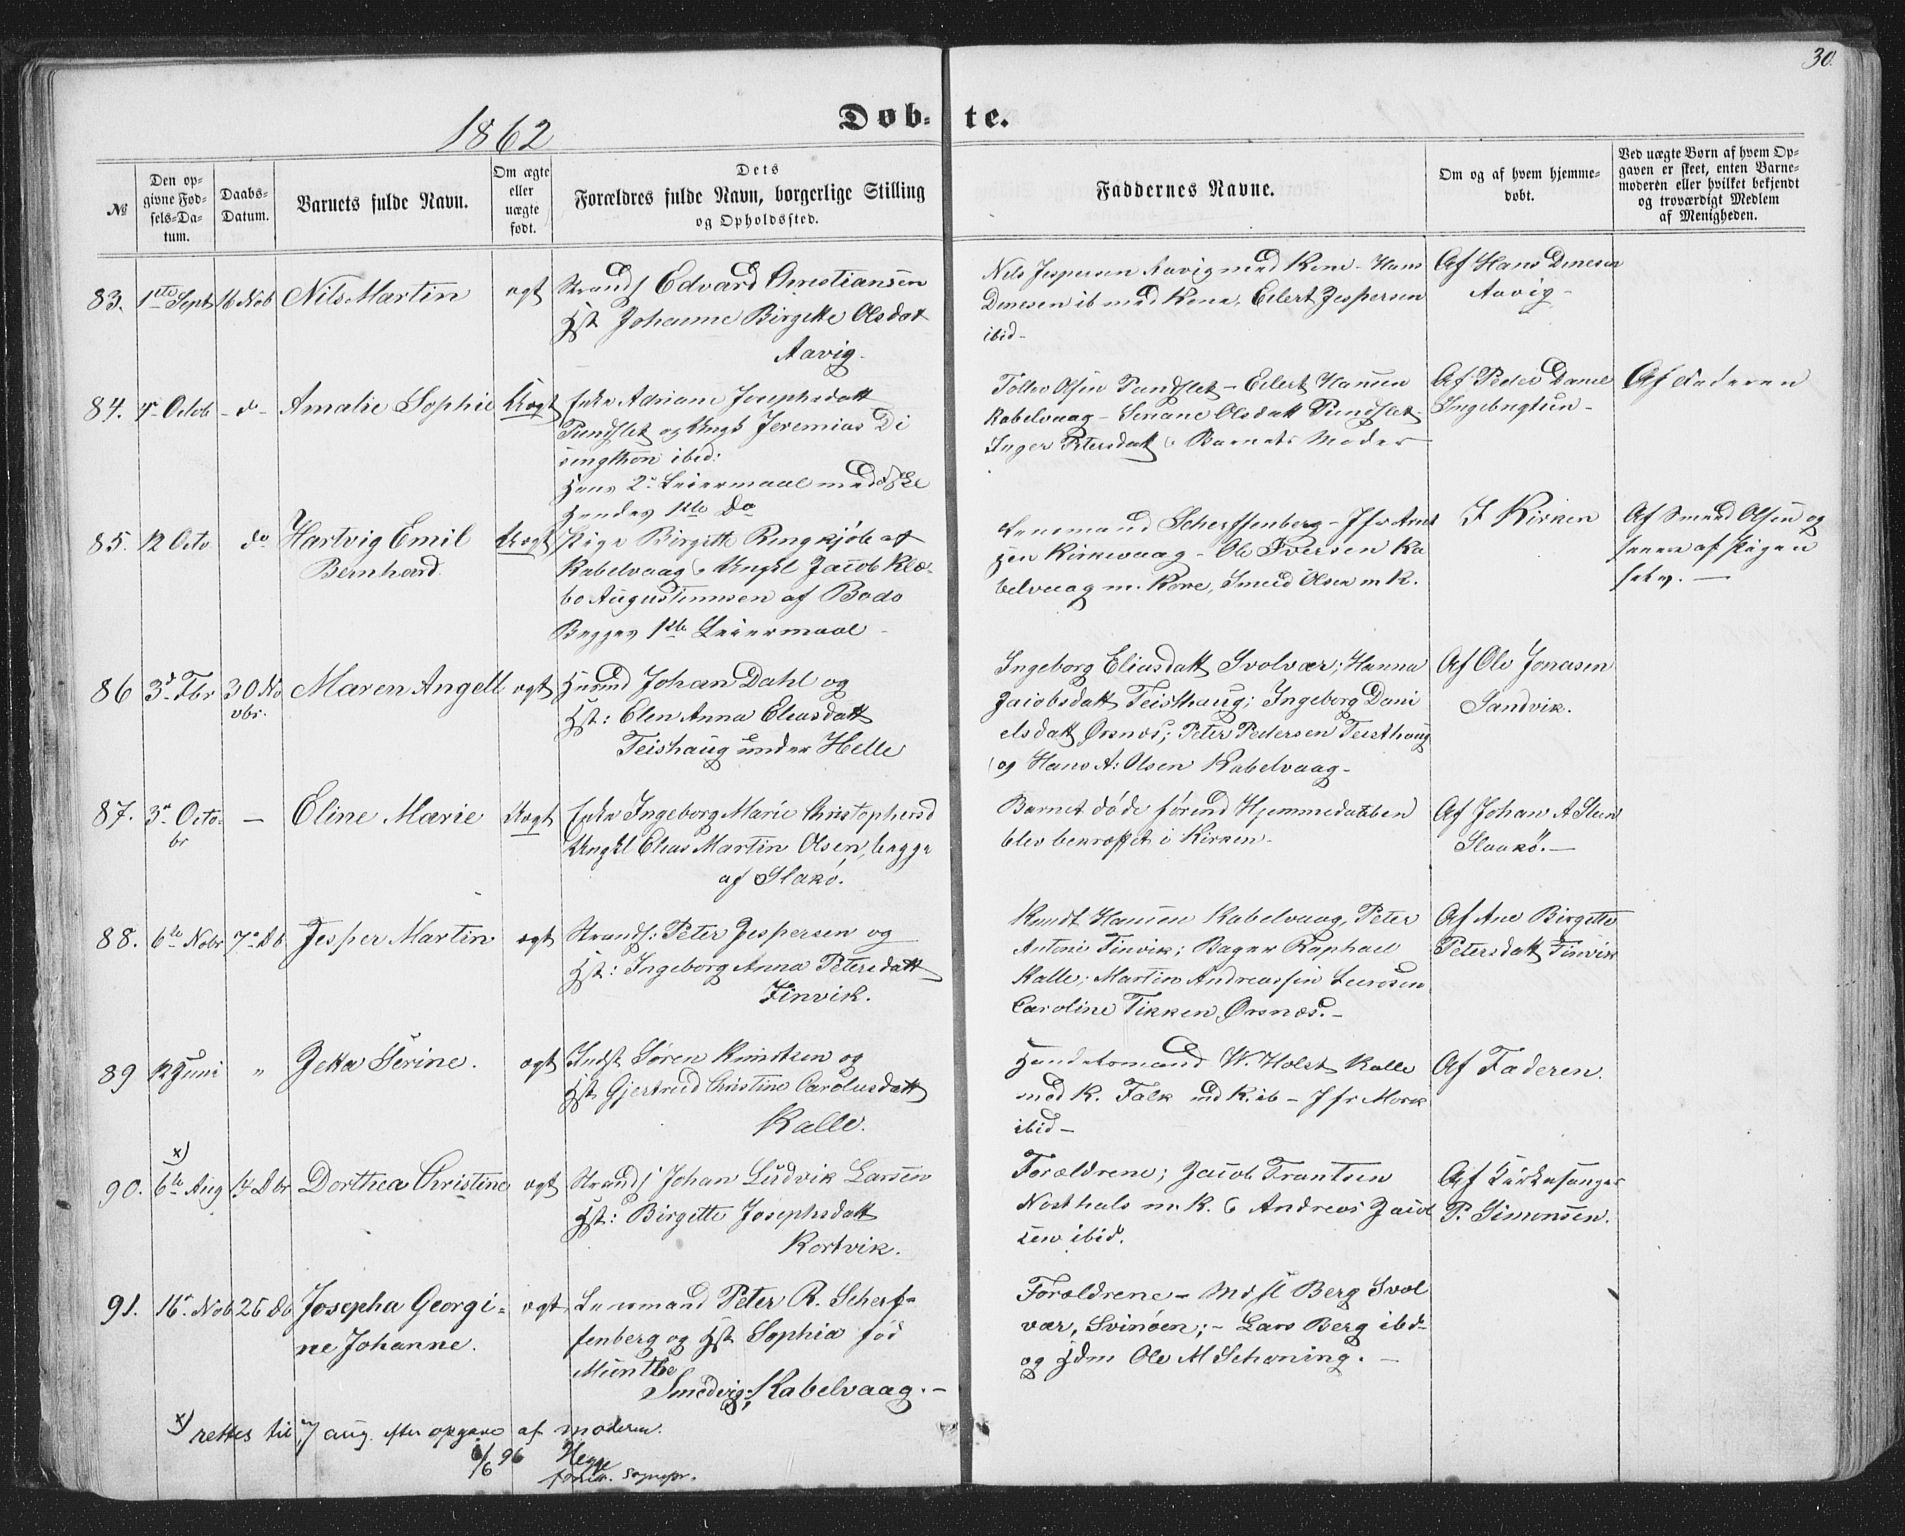 30.
1862
Døb-te.
№
Den opgivne Fødsels-Datum.
Daabs-Datum.
Barnets fulde Navn.
Om ægte eller uægte født.
Dets Forældres fulde Navn, borgerlige Stilling og Opholdssted.
Faddernes Navne.
Om og af hvem hjemmedøbt.
Ved uægte Børn af hvem Opgaven er skeet, enten Barnemoderen eller hvilket bekjendt og troværdigt Medlem af Menigheden.
83. 1ste Sept 16 Nob Nils Martin ægt
Strands Edvard Christiansen
Hst Johanne Birgitte Olsdat
Aavig.
Nils Jespersen Aavig med Kone - Hans
Denesen ib med Kone, Eilert Jespersen
ibid-
Af Hans Denesen
Aavig-
84. 4 Octob - do - Amalie Sophie Uægt
Enke Adriane Josephsdatt
Pundslet og Ungk Jeremias Di
ibid:
Hans 2 Leiermaal med
Hendes 1ste Do
Tollev Olsen Pundslet - Eilert Hansen
Kabelvaag - Seriane Olsdatt Pundslet
Inger Petersdatt Barnets Moder
Af Peder Daniel
Ingebrigtsen-
Af Faderen
85. 12 Octo do Hartvig Emil
Bernhard.
Uægt
Pige Birgitte Ringkjøb af
Kabelvaag Ungkl Jacob Klæ-
bo Augustinusen af Bodø
Begges 1ste Leiermaal -
Lensmand Scherffenberg - Jfr
Kirkevaag - Ole Iversen Ka
belvaag m. Kone, Smed Olsen m K.
I Kirken
Af Smed Olsen og
senere af Pigen
selv. -
86 3d Fbr 30 No
vbr.
Maren Angell ægt
Husmd Johan Dahl og
Hst: Elen Anna Eliasdatt
Teishaug under Helle
Ingeborg Eliasdatt Svolvær; Hanna
Jacobsdatt Teisthaug; Ingeborg Dani
elsdatt Ørsnæs; Peter Pedersen Teisthaug
og Hans A: Olsen Kabelvaag-
Af Ole Jonasen
Sandvik.
87. 3 Octo-
br
- Eline Marie Uægt
Enke Ingeborg Marie Christophersd
Ungkl Elias Martin Olsen, begge
af Skakø.
Barnet døde førend Hjemmedaaben
blev bekræftet i Kirken-
Af Johan A Steen
88. 6te Nobr 7 Db Jesper Martin ægt
Strands: Peter Jespersen og
Hst: Ingeborg Anna Petersdatt
Finvik.
Knudt Hansen Kabelvaag, Peter
Antoni Finvik; Bager Raphael
Kalle; Martin Andreassen
Caroline Tikken Ørsnæs.-
Af Ane Birgitte
Petersdatt Finvik
89 12 Juni " Jetta Serine. ægt
Indst Søren Knutsen og
Hst Gjertrud Christine Carolusdatt
Kalle.
Handelsmand W. Holst Kalle
med K. Falk md K. ib - Jfr Mork
ibid-
Af Faderen.
x)
90. 6te Aug 14 Dbr Dorthea Christine ægt
Strands Johan Ludvik Larsen
Hst: Birgitte Josephsdatt
Kortvik.
Forældrene; Jacob Frantsen
m. K. Andreas Jacob
sen ibid.
Af Kirkesanger
P. Simonsen.
91. 16 Nob 26 Db Josepha Georgi-
ne Johanne.
ægt
Lensmand Peter R. Scherf-
fenberg og Hst Sophia fød
Münthe
Smedvig, Kabelvaag. -
Forældrene - Berg Svol
vær, Svinøen; - Lars Berg ibd-
og Ole M Schøning. -
x) rettes til 7 aug. efter opgave af moderen.
6/6 96 Hegge
sognepr.